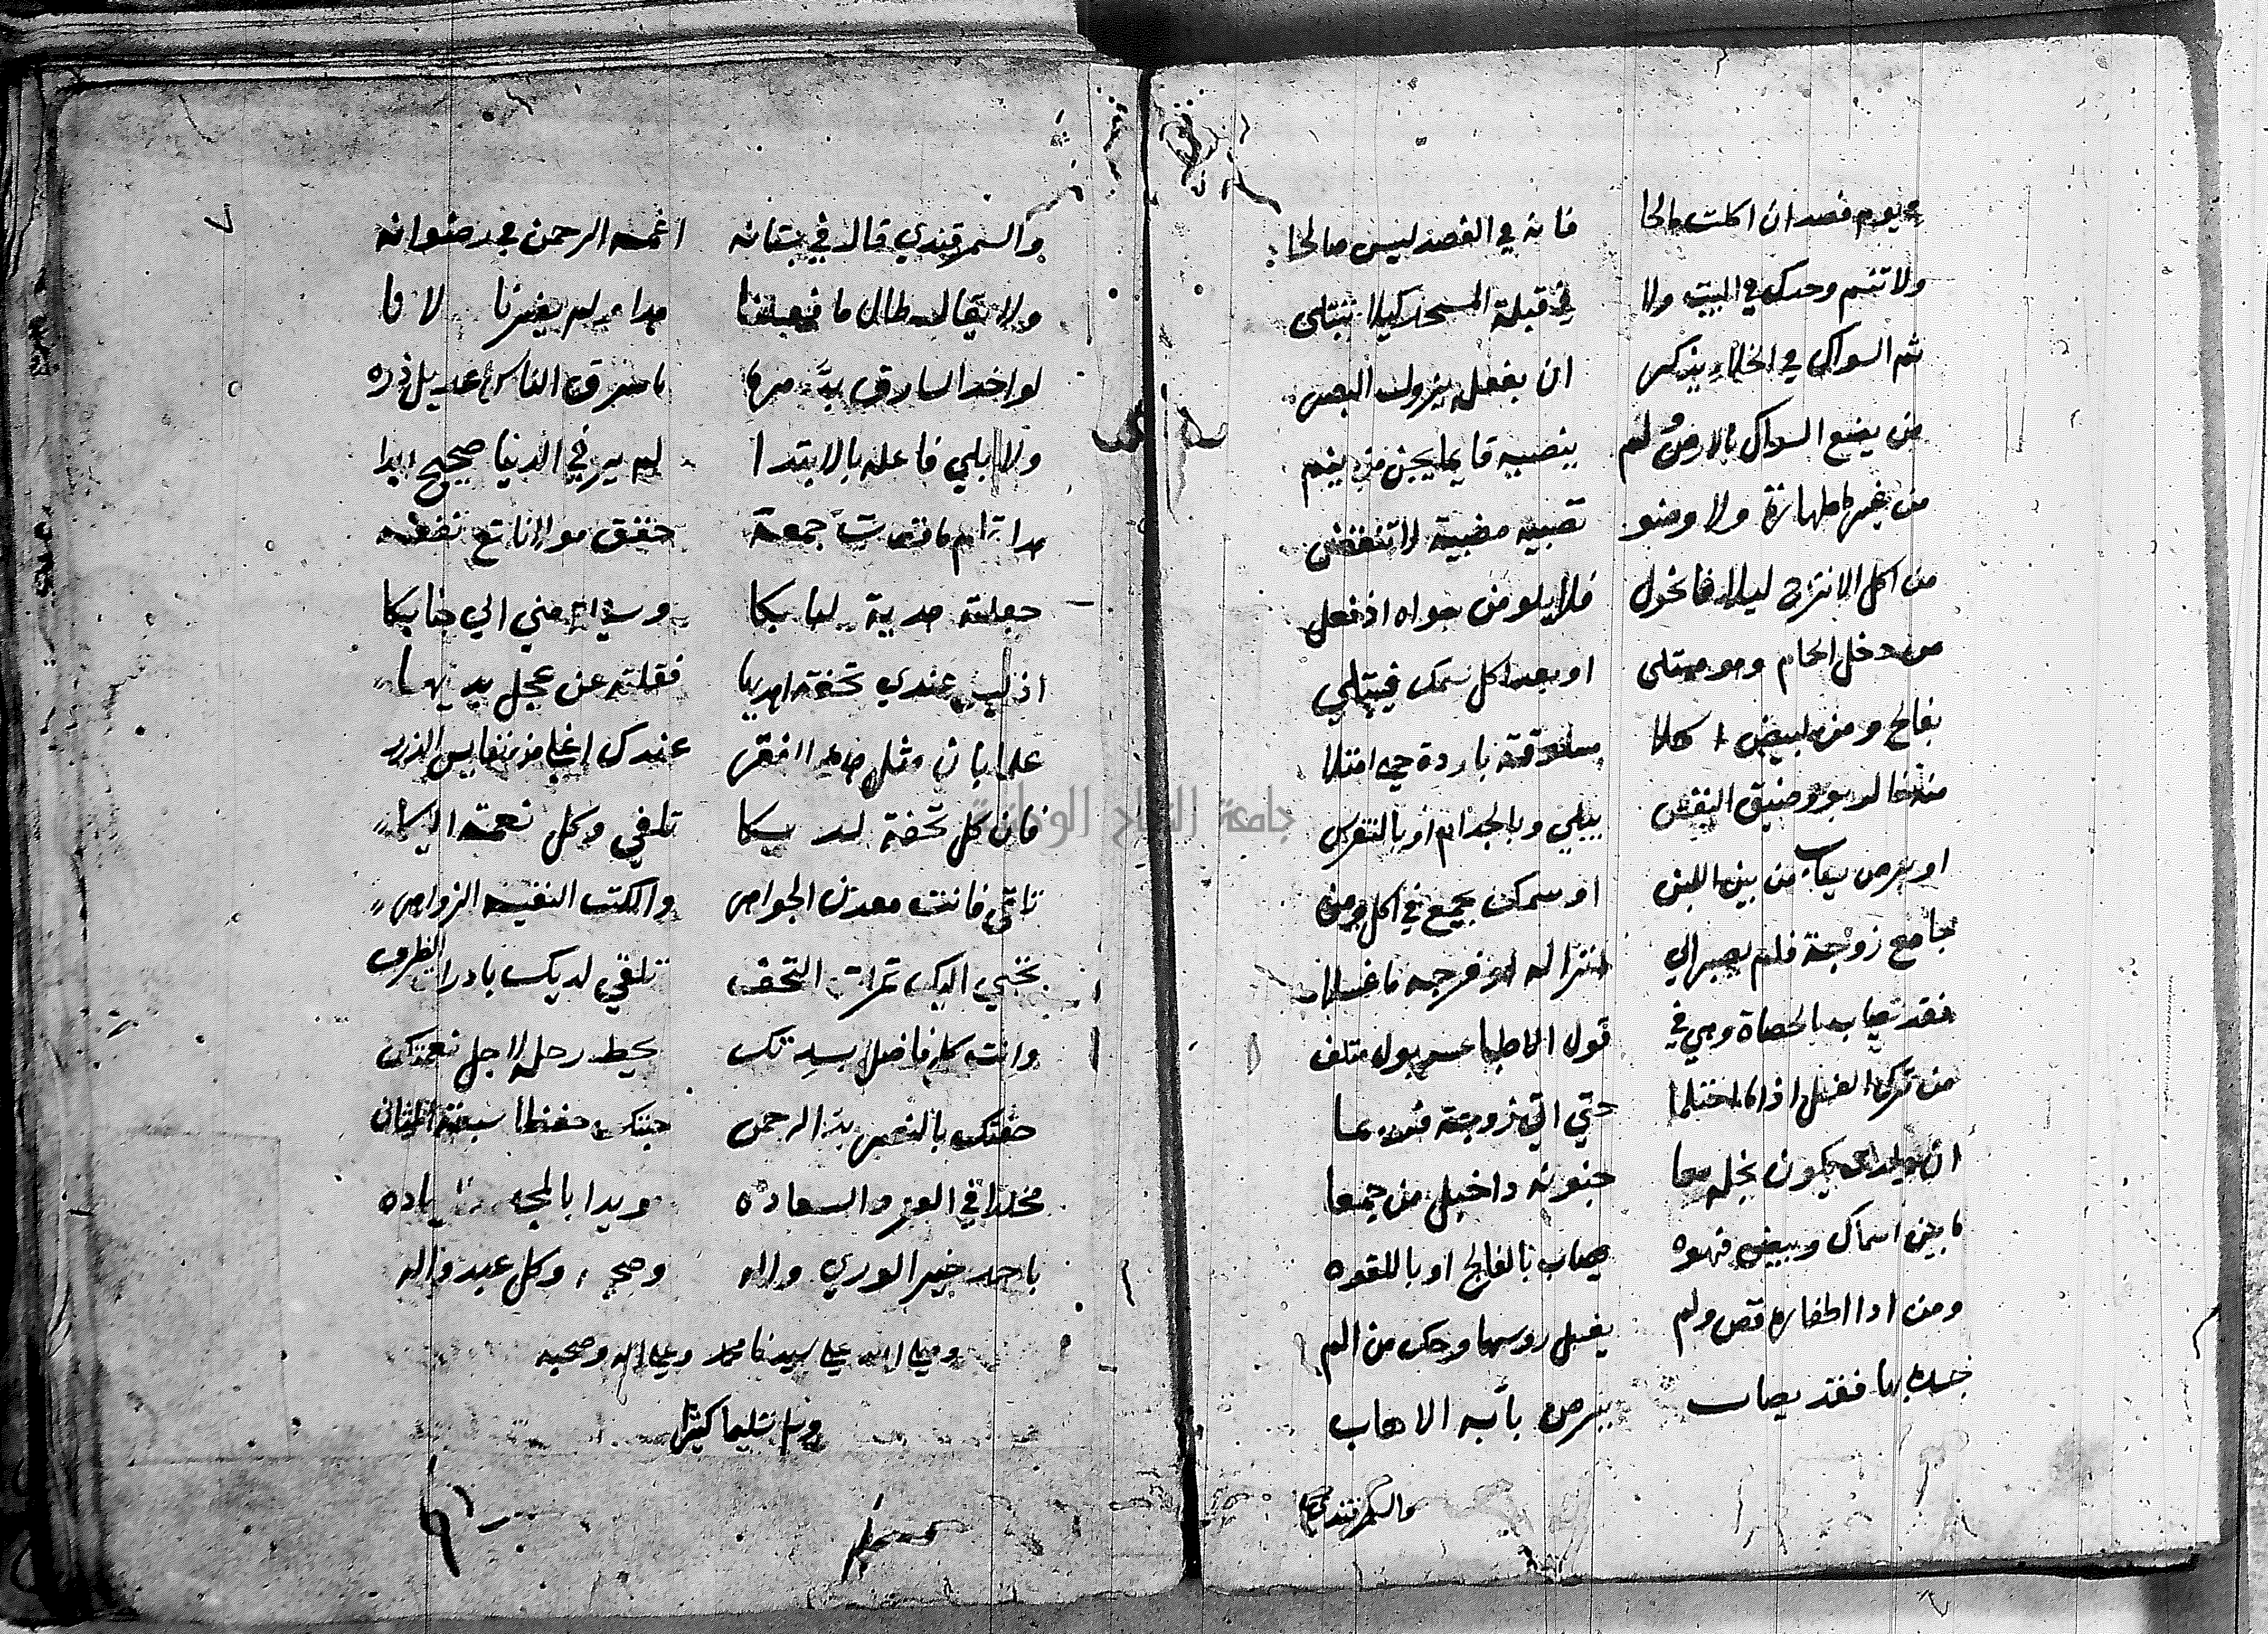 ويوم فصد ان اكلت مالحا فانه في الفصد ليس صالحا
ولا تنم وحدك في البيت ولا في قبلة المسجد كيلا تبتلى
ثم السواك في الخلاء يذكر ان يفعل يزول البصر
من يضع السواك بالارض ولم ينصبه قايما يجن من ينم
من غير طهارة ولا وضو تصبه مصيبة لا تنقض
من اكل الاترج ليلا فانحول فلا يلومن سواه اذ فعل
من دخل الحمام وهو ممتلى او بعد اكل سمك فيبتلي
بفالج ومن لبيض اكلا مسلوقة باردة حتى امتلا
وضيق النفس يبلي وبالجذام او بالنقرس
او برص من بين اللبن او سمك يجمع في اكل ومن
جامع زوجة فلم يصبر الي انزاله او فرجه ما غسلا
فقد يصاب بالحصاة وهي في قول الاطبا عسر بول متلف
من ترك الغسل اذا ما احتلما حتي اتى زوجته
يكون نجله معا جنونه داخيل من جمعا
ما بين اسماك وبيض قهوه يصاب بالفالج او باللقوه
ومن اذا اظفاره قص ولم يغسل روسها وحك من الم
جسده بها فقد يصاب ببرص بانه الاهاب
والسمرقندي
والسمرقندي قال في بستانه اغمسه الرحمن في رضوانه
ولا يقال طال ما فعلنا هذا ولم يضرنا لانا
لو اخذ السارق بد مره ما سرق الناس عديل ذره
ولا بلي فاعله بالابتدا لم ير في الدنيا صحيح ابدا
هذا تمام جمعه حقق مولانا نفعه
جعلته هدية لبابكا مني الي جنابكا
اذ ليس عندي تحفة اهديها فقلته عن عجل بديها
علما بان مثل هذا الفقر عندك اغلي من نفايس الدرر
فان كل تحفة لديكا تلفي وكل نعمة اليكا
تاتي فانت معدن الجواهر والكتب النفيسة الزواهر
تجبي اليك ثمرات التحف تلقي لديك بادرات الطرف
وانت كل فاضل بسدتك يحط رحله لاجل نعمتك
حفتك بالنصر يد الرحمن جبتك حفظا سبعة المثاني
مخلدا في العز والسعاده وبدا بالمجد زياده
باحمد خير الوري واله وصحبه وكل عبد واله
وصلي الله علي سيدنا محمد وعلي اله وصحبه
وسلم تسليما كثيرا